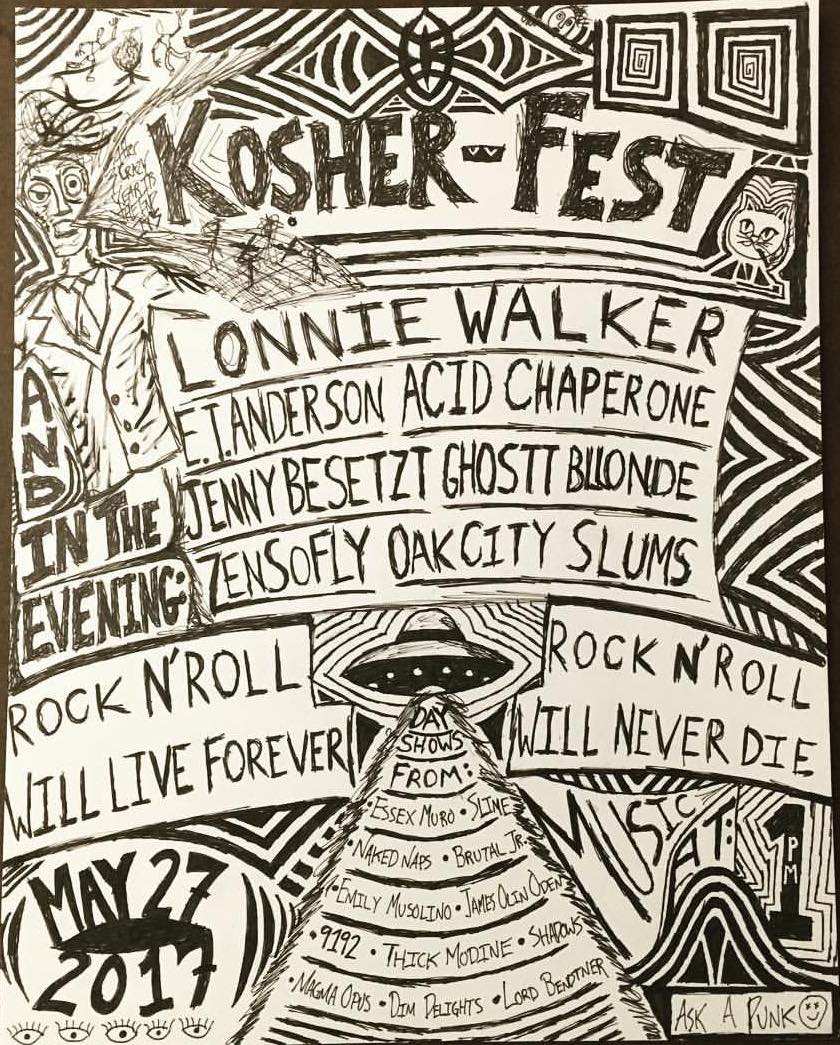 KOSHER-FEST
LONNIE WALKER
E.T. ANDERSON ACID CHAPERONE
JENNY BESETZT GHOSTT BLLONDE
ZENSOFLY OAK CITY SLUMS
AND
IN THE
EVENING:
ROCK N' ROLL
WILL LIVE FOREVER
ROCK N' ROLL
WILL NEVER DIE
DAY
SHOWS
FROM:
• ESSEX MURO • SLINE
• NAKED NAPS • BRUTAL JR.
• EMILY MUSOLINO • JAMES OLIN ODEN
• 9192 • THICK MODINE • SHADOWS
• MAGMA OPUS • DIM DELIGHTS • LORD BENDTNER
MUSIC
AT:
1
PM
MAY 27
2017
ASK A PUNK